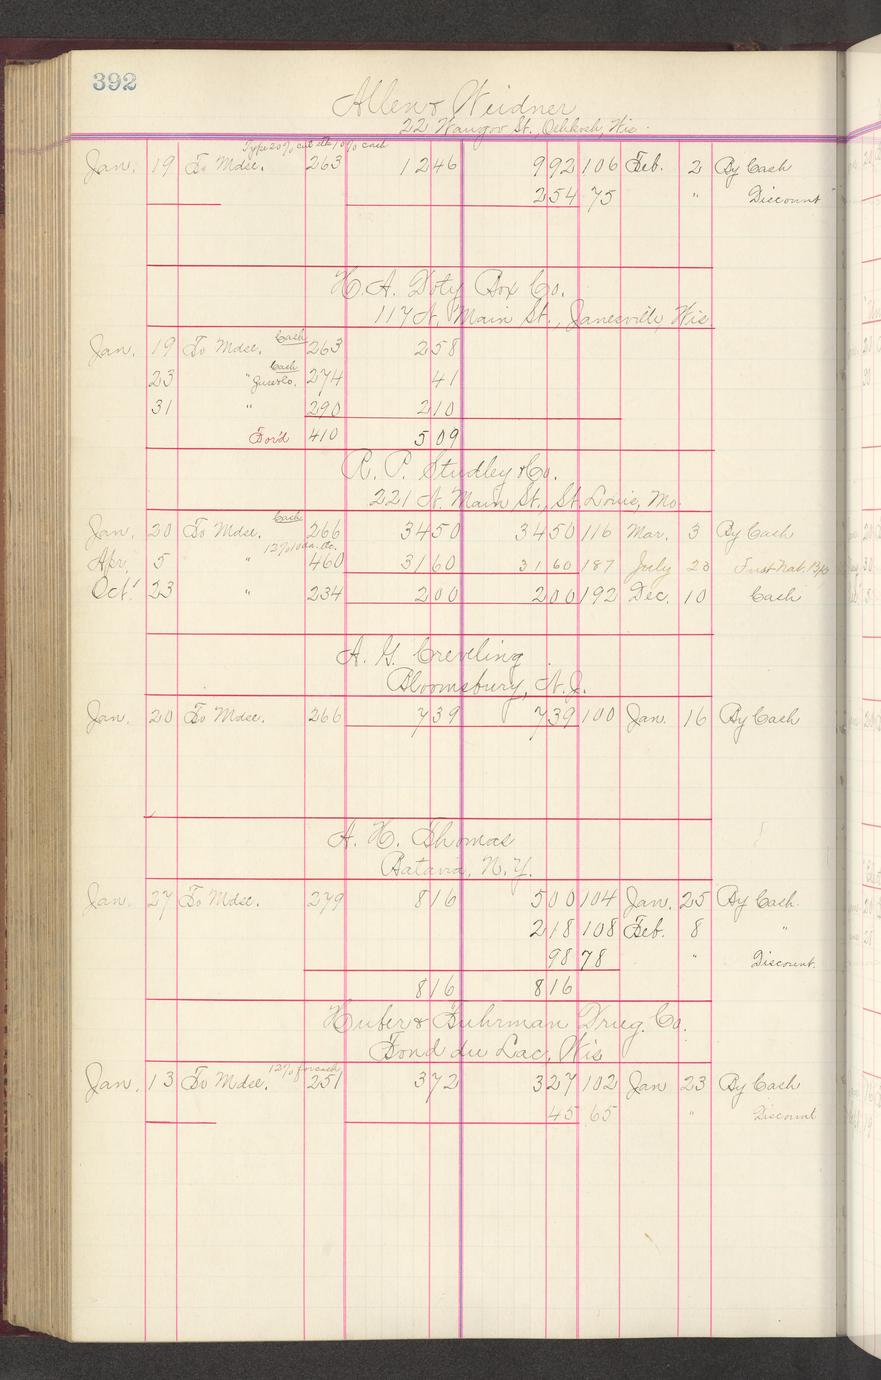 392
Allen & Weidner
22 Waugoo St., Oshkosh, Wis.
Type 20% cut etc 10% cash
Jan. 19 To Mdse. 263 1246 992 106 Feb. 2 By Cash
254 75 " Discount
H. A. Doty Box Co.
117 N. Main St., Janesville Wis.
Cash
Jan. 19 To Mdse. 263 258
Cash
23 " 274 41
31 " 290 210
For'd 410 509
R. P. Studley & Co.
221 N. Main St., St. Louis, Mo.
Cash
Jan. 20 To Mdse. 266 3450 3450 116 Mar. 3 By Cash
Apr. 5 " 460 3160 3160 187 July 23
Oct. 23 " 234 200 200 192 Dec. 10 Cash
A. G. Creveling
Bloomsbury, N.J.
Jan. 20 To Mdse. 266 739 739 100 Jan. 16 By Cash
A. H. Thomas
Batavia, N.Y.
Jan. 27 To Mdse. 279 816 500 104 Jan. 25 By Cash.
218 108 Feb. 8 "
98 78 " Discount.
816 816
Huber & Fuhrman Drug. Co.
Fond du Lac, Wis
12% for cash
Jan. 13 To Mdse. 251 372 327 102 Jan 23 By Cash
45 65 " Discount